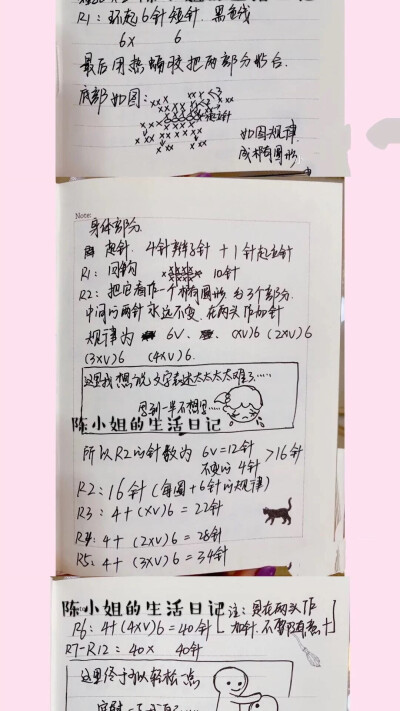 R1：环起6针短针. 黑色线
6X 6
最后用热熔胶把两部分粘合.
底部如图：
如图规律
成椭圆形
Note:
身体部分.
起针. 4针辫子针 +1针起立针
R1： 10针
R2：把它看作一个椭圆形. 分3个部分.
中间的两针永远不变. 在两头作加针
规律为 6V、 (XV)6 (2XV)6
(3XV)6 (4XV)6.
这里我想说文字表述太太太太难了……
陈小姐的生活日记
所以R2的针数为 6V=12针 >16针
不变的4针
R2：16针 (每圈+6针的规律)
R3：4+(XV)6 = 22针
R4：4+ (2XV)6 = 28针
R5：4+ (3XV)6 = 34针
陈小姐的生活日记 [注：只在两头作
R6：4+(4XV)6=40针 加针.
R7-R12：40X 40针
这里终于可以轻松一点